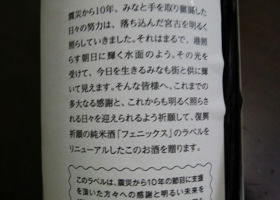 震災から10年、みなと手を取り奮闘した
日々の努力は、落ち込んだ宮古を明るく
照らしていきました。それはまるで、港照
らす朝日に輝く水面のよう。その光を
受けて、今日を生きるみなも街と供に輝
いて見えます。そんな皆様へ、これまでの
多大なる感謝と、これからも明るく照らさ
れる日々を迎えられるよう祈願して、復興
祈願の純米酒「フェニックス」のラベルを
リニューアルしたこのお酒を贈ります。
このラベルは、震災から10年の節目に支援
を頂いた方々への感謝と明るい未来を